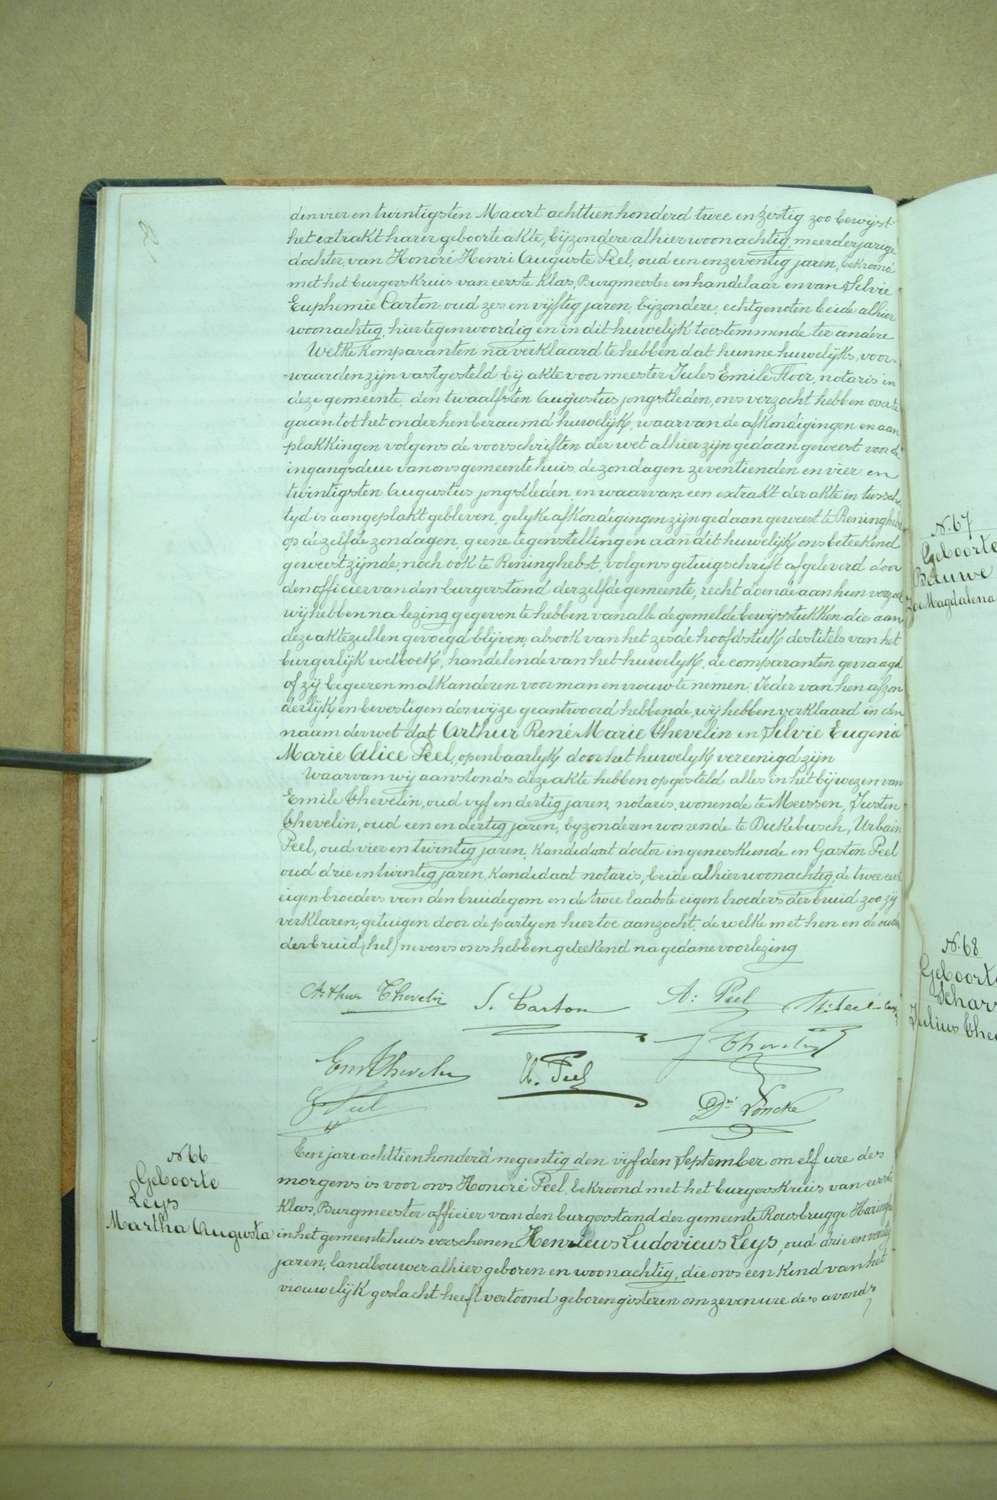 den vier en twintigsten Maart achttien honderd twee en zestig zoo bewijst
het extrakt harer geboorteakte, bijzondere alhier woonachtig, meerderjarige
dochter van Honoré Henri Auguste Peel, oud een en zeventig jaren, bekroond
met het burgerskruis van eerste klas, Burgmeester en handelaar en van Silvie
Euphemie Carton oud zes en vijftig jaren, bijzondere, echtgenoten beide alhier
woonachtig, hier tegenwoordig en in dit huwelijk toestemmende ter andere
Welke komparanten na verklaard te hebben dat hunne huwelijks, voor-
waarden zijn vastgesteld bij akte voor meester Jules Emile Floor, notaris in
deze gemeente, den twaalfsten Augustus jongstleden, ons verzocht hebben over te
gaan tot het onder hen beraamd huwelijk, waarvan de afkondigingen en aan
plakkingen volgens de voorschriften der wet alhier zijn gedaan geweest voor de
ingangsdeur van ons gemeentehuis, de zondagen zeventienden en vier en
twintigsten Augustus jongstleden, en waarvan een extrakt der akte in tusschen
tyd is aangeplakt gebleven, gelyke afkondigingen zijn gedaan geweest te Reninghelst
op de zelfde zondagen, geene tegenstellingen aan dit huwelijk ons beteekend
geweest zijnde, noch ook te Reninghelst, volgens getuigschrift afgeleverd door
den officier van den burgerstand der zelfde gemeente, recht doende aan hun verzoek
wij hebben na lezing gegeven te hebben van alle de gemelde bewijsstukken die aan
deze akte zullen gevoegd blijven, alsook van het zesde hoofdstuk des titels van het
burgerlijk wetboek, handelende van het huwelijk, de comparanten gevraagd
of zij begeeren malkanderen voor man en vrouw te nemen. Ieder van hen afzon
derlijk en bevestigender wijze geantwoord hebbende, wij hebben verklaard in den
naam der wet dat Arthur René Marie Chevelin en Silvie Eugenie
Marie Alice Peel, openbaarlyk door het huwelijk vereenigd zijn
Waarvan wij aanstonds deze akte hebben opgesteld alles in het bijwezen van
Emile Chevelin, oud vijf en dertig jaren, notaris, wonende te Meessen, Justin
Chevelin, oud een en dertig jaren, byzonderen wonende te Dickebusch, Urbain
Peel, oud vier en twintig jaren, kandidaat doctor in geneeskunde en Gaston Peel
oud drie en twintig jaren, kandidaat notaris, beide alhier woonachtig, de twee eerste
eigen broeders van den bruidegom en de twee laatste eigen broeders der bruid zoo zij
verklaren, getuigen door de partyen hiertoe aanzocht, de welke met hen en de ouders
der bruid, (hel) nevens ons hebben geteekend na gedane voorlezing
Arthur Chevelin S. Carton A: Peel
Em Chevelin U. Peel J Chevelin
G Peel Dré Loncke
N. 66
Geboorte
Leys
Martha Augusta
Een jare achttien honderd negentig den vijfden September om elf ure des
morgens is voor ons Honoré Peel, bekroond met het burgerskruis van eerste
klas, Burgmeester officier van den burgerstand der gemeente Rousbrugge Haringhe
in het gemeentehuis verschenen Henricus Ludovicus Leys, oud drie en veertig
jaren, landbouwer alhier geboren en woonachtig, die ons een kind van het
vrouwelijk geslacht heeft vertoond geboren gisteren om zeven ure des avonds
N. 67
Geboorte
Magdalena
N. 68
Geboorte